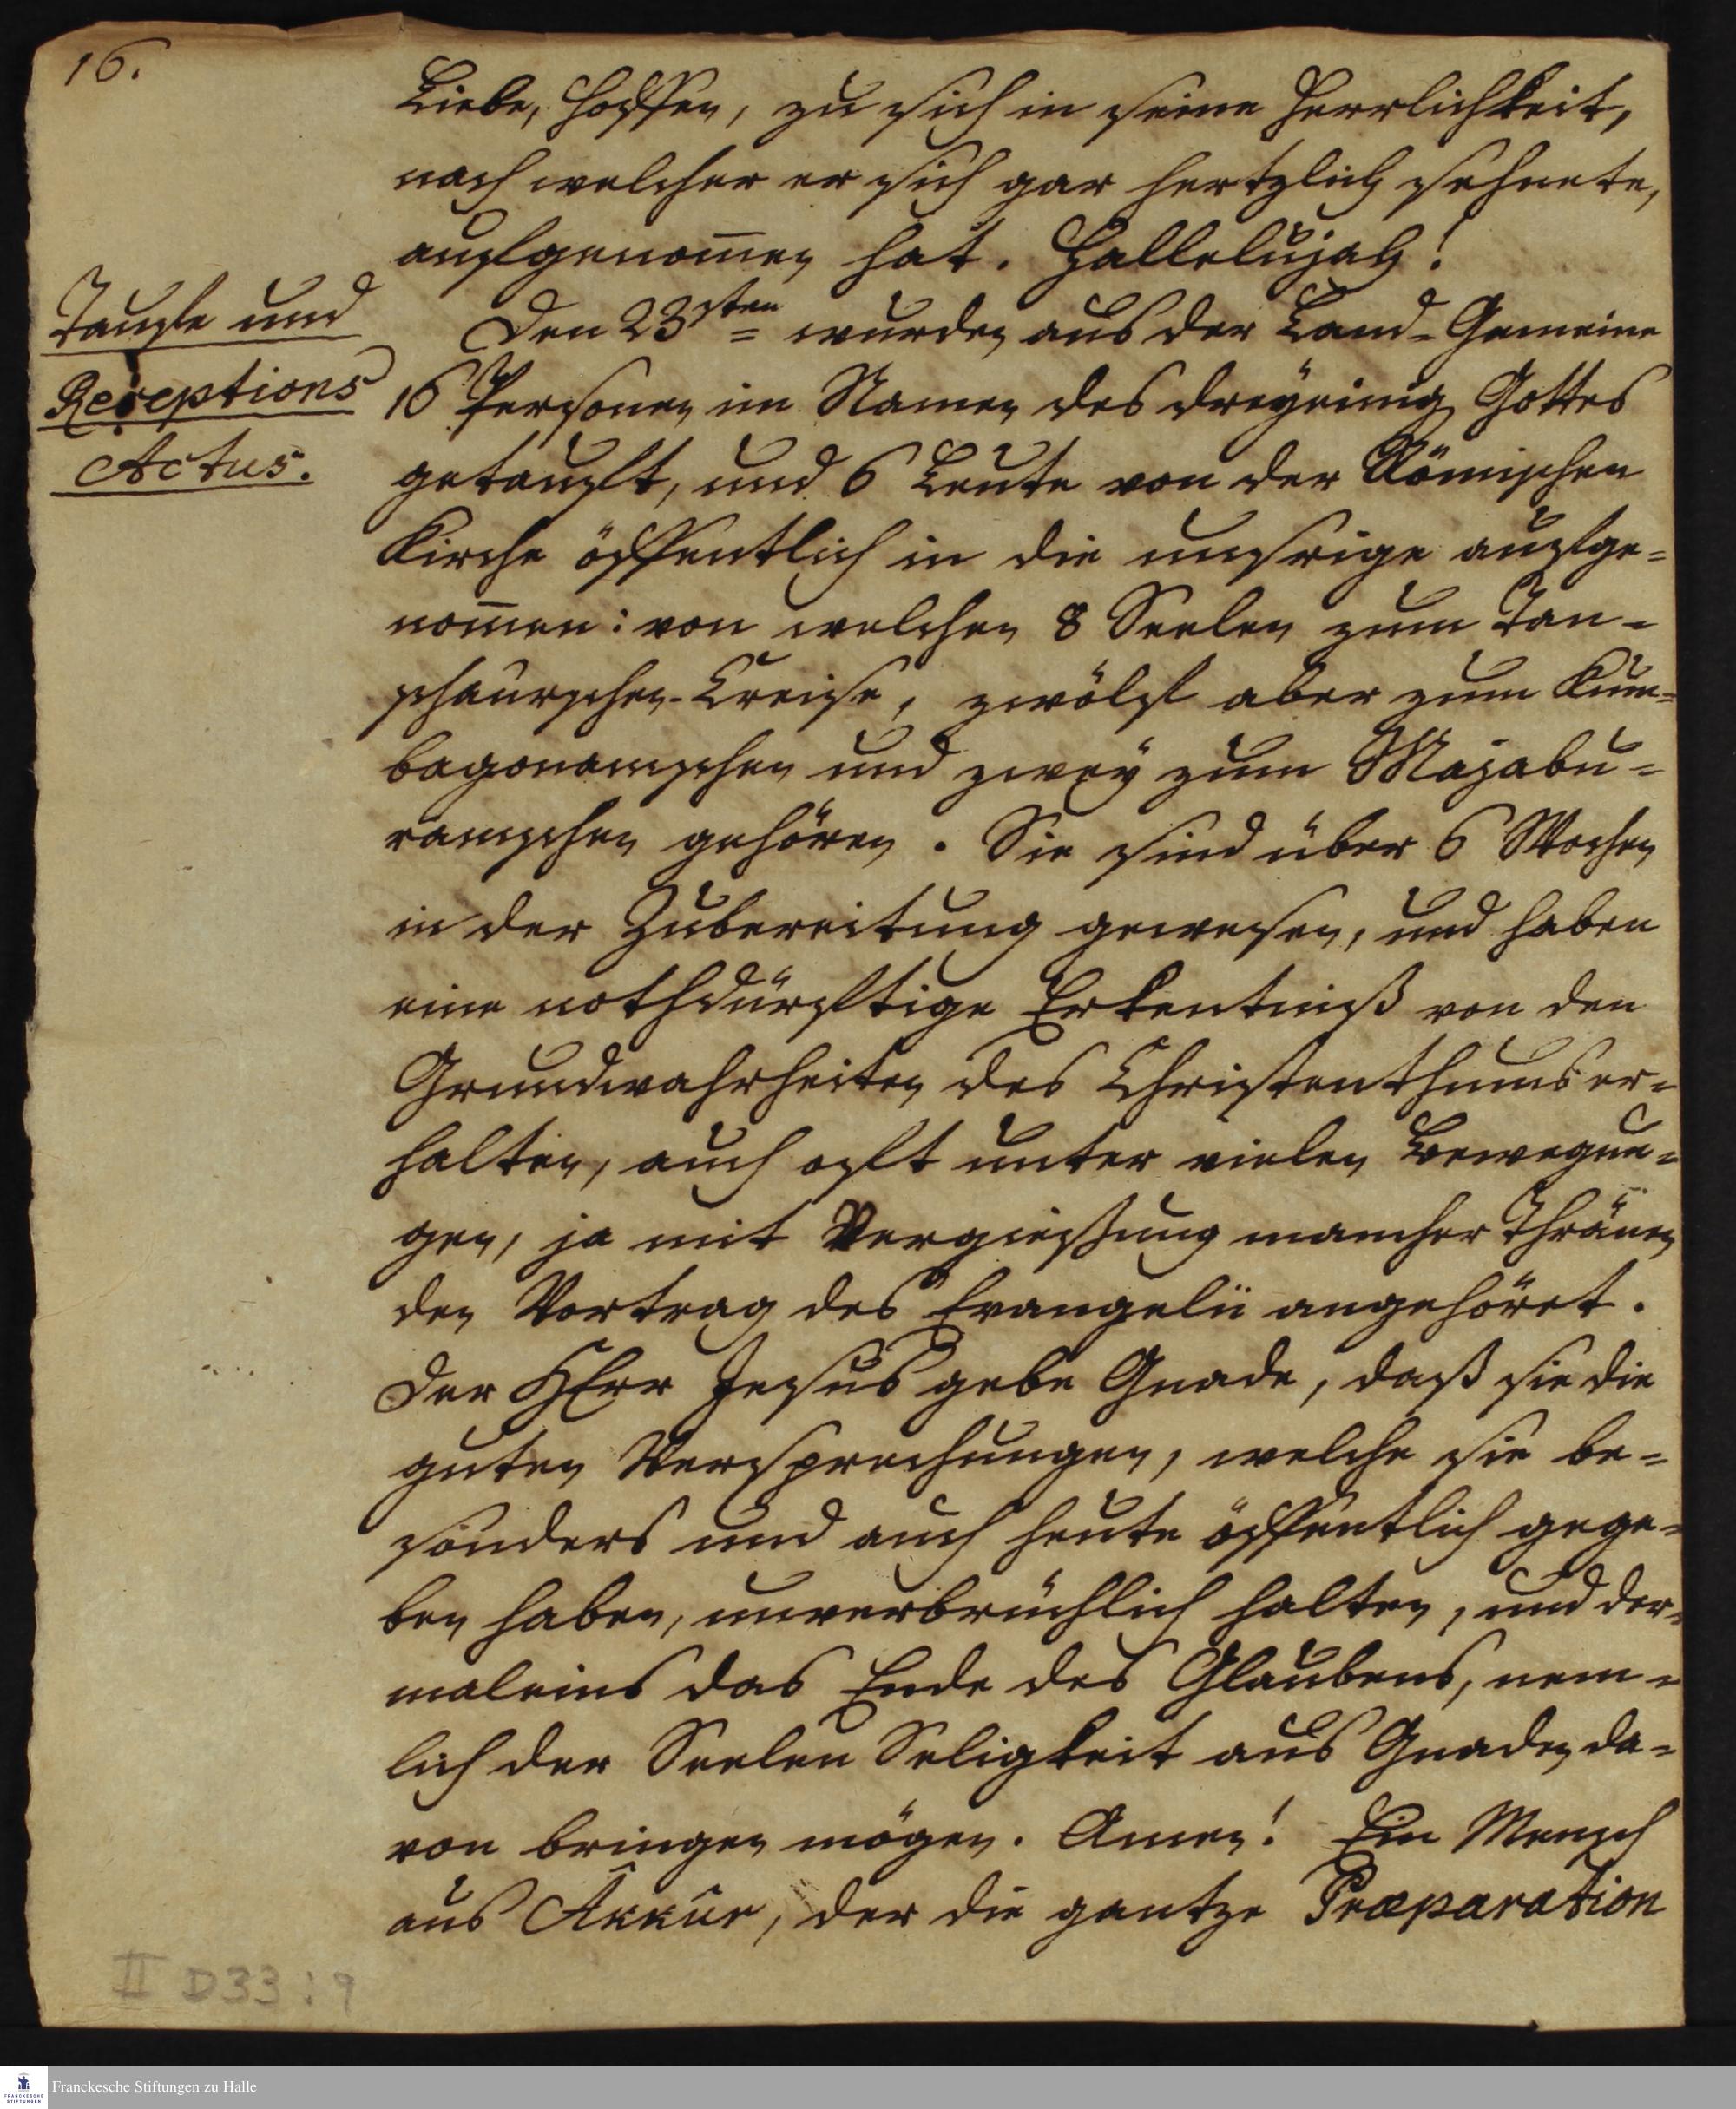 16.
Liebe, hoffen, zu sich in seine Herrlichkeit,
nach welcher er sich gar hertzlich sehnete,
aufgenom̄en hat. Hallelujah!
Taufe und
Receptions
Actus.
Den 23sten wurden aus der Land-Gemeine
16 Personen im Namen des dreyeinig. Gottes
getauft, und 6 Leute von der Römischen
Kirche öffentlich in die unsrige aufge=
nom̄en: von welchen 8 Seelen zum Tan=
schaurschen-Creise, zwölf aber zum Kum=
bagonamschen und zwey zum Majabu=
ramschen gehören. Sie sind über 6 Wochen
in der Zubereitung gewesen, und haben
eine nothdürftige Erkentniß von den
Grundwahrheiten des Christenthums er=
halten, auch oft unter vielen Bewegun=
gen, ja mit Vergiessung mancher Thränen
den Vortrag des Evangelii angehöret.
Der HErr Jesus gebe Gnade, daß sie die
guten Versprechungen, welche sie be=
sonders und auch heute öffentlich gege=
ben haben, unverbrüchlich halten, und der=
maleins das Ende des Glaubens, nem=
lich der Seelen Seligkeit aus Gnaden da=
von bringen mögen. Amen! Ein Mensch
aus Âkkûr, der die gantze Præparation
II D33:9
Franckesche Stiftungen zu Halle
FRANCKESCHE
STIFTUNGEN